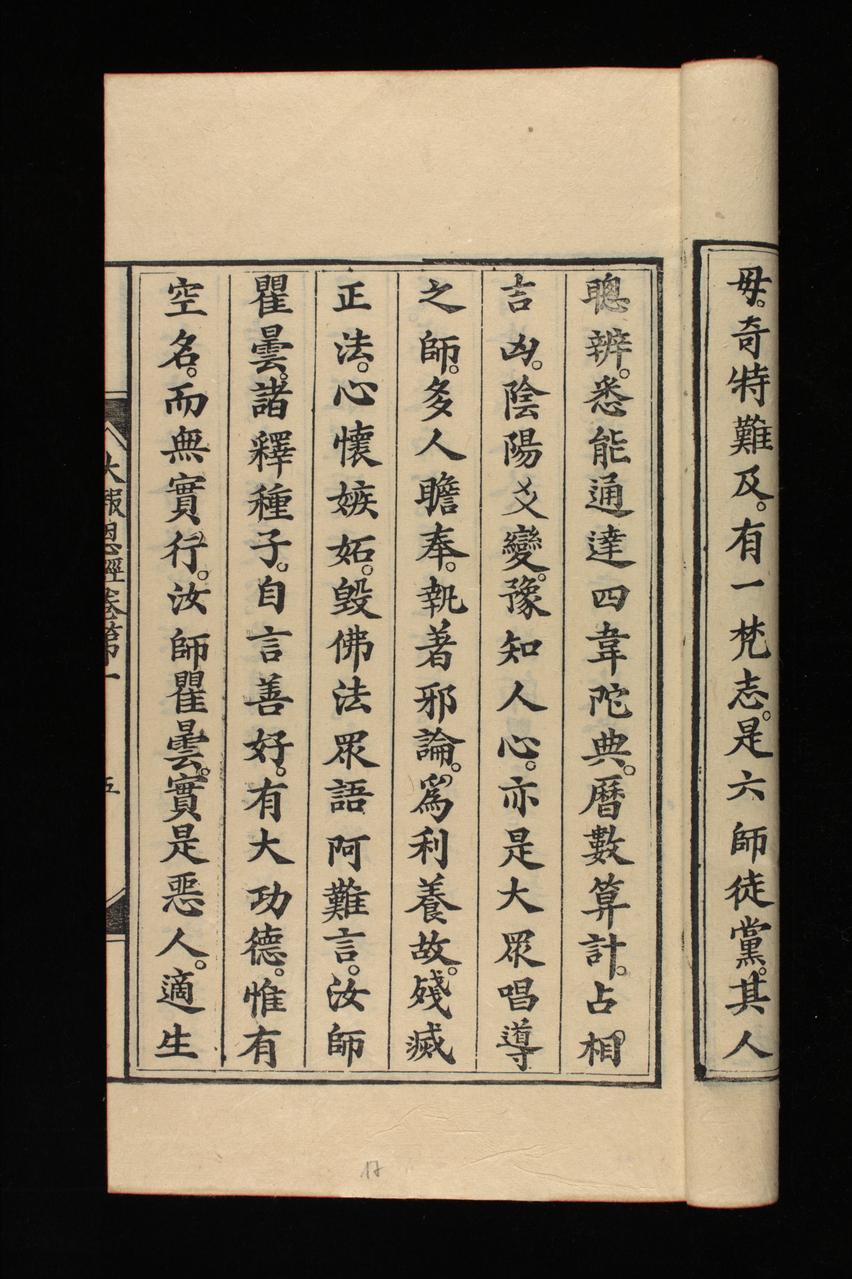 毋。奇特難及。有一梵志。是六師徒黨。其人
聰辨。悉能通達四韋陀典。曆數算計。占相
吉凶。陰陽爻變。豫知人心。亦是大眾唱導
之師。多人瞻奉。執著邪論。爲利養故。殘滅
正法。心懷嫉妬。毀佛法眾語阿難言。汝師
瞿曇。諸釋種子。自言善好。有大功德。惟有
空名。而無實行。汝師瞿曇。實是惡人。適生
大報恩經卷第一 五
17